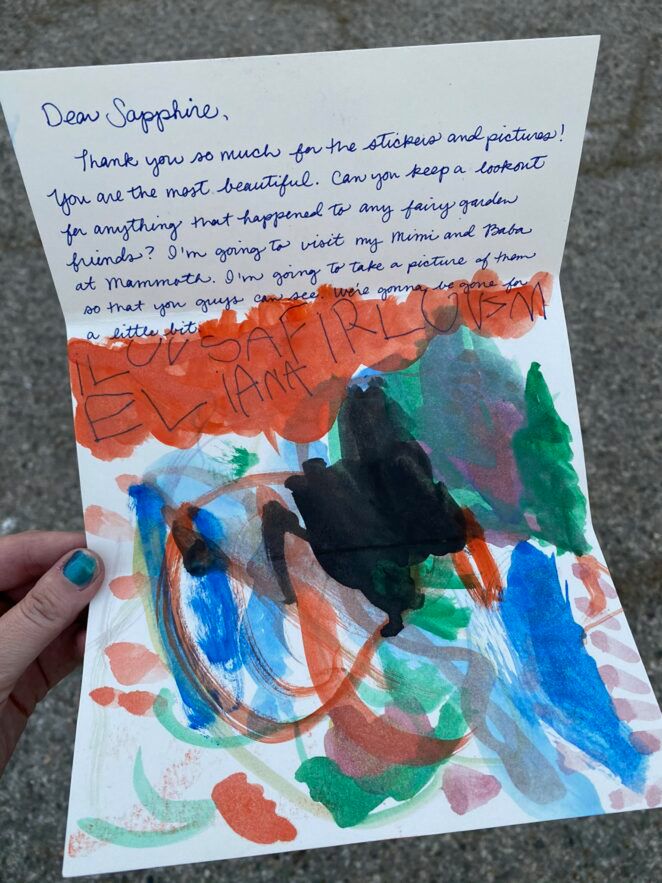 Dear Sapphire,
Thank you so much for the stickers and pictures!
You are the most beautiful. Can you keep a lookout
for anything that happened to any fairy garden
friends? I'm going to visit my Mimi and Baba
at Mammoth. I'm going to take a picture of them
so that you guys can see. We're gonna be gone for
a little bit.
iLOV SAFIRLOVEM
ELIANA